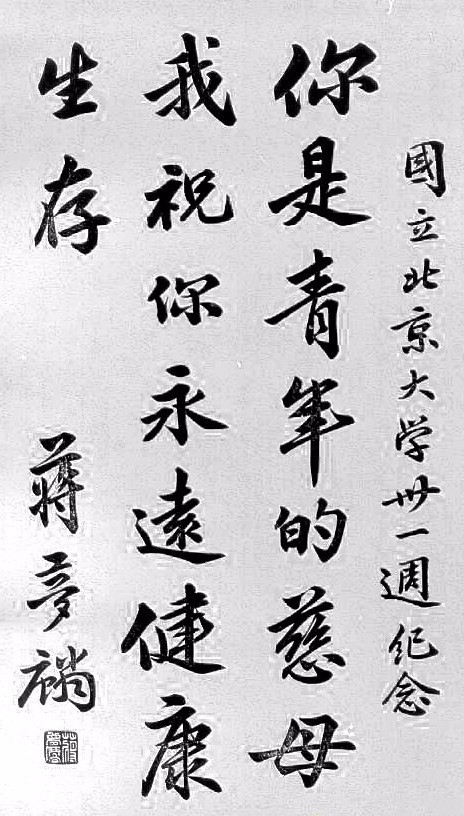 國立北京大学卅一週紀念
你是青年的慈母
我祝你永遠健康
生存
蔣夢麟